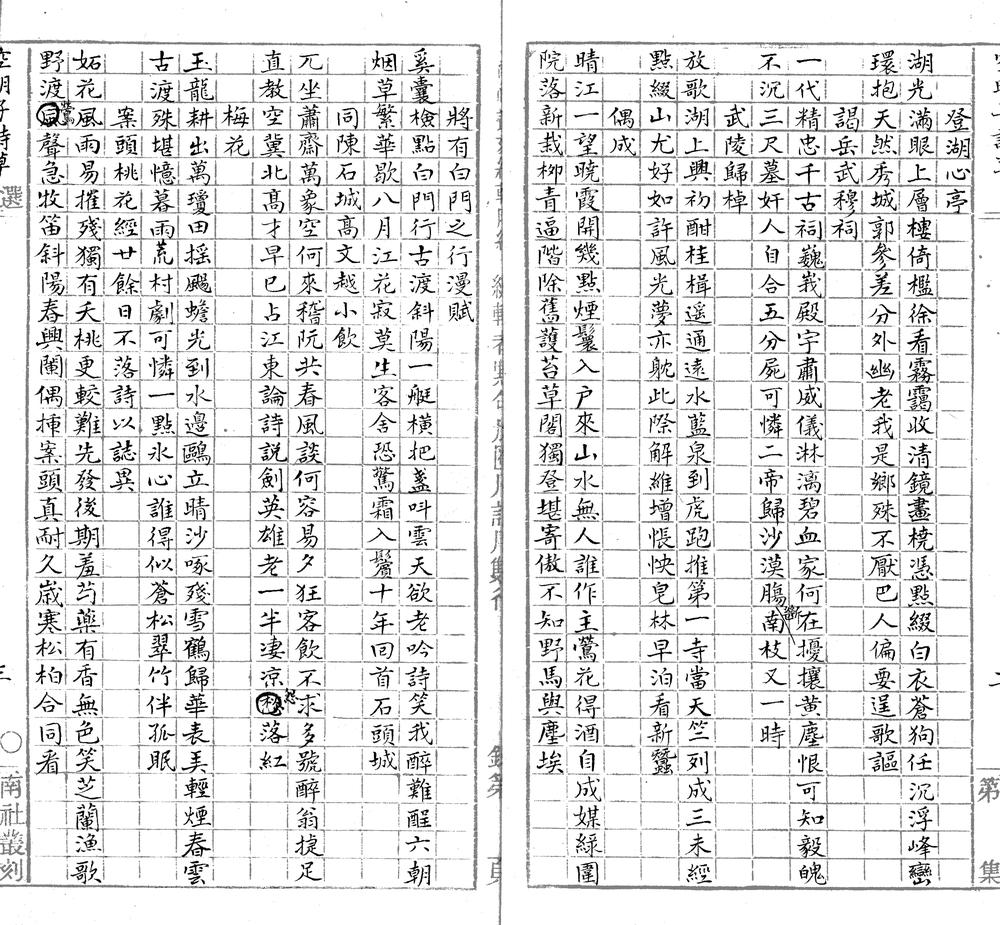 登湖心亭
湖光滿眼上層樓倚檻徐看霧靄收清鏡畫橈憑點綴白衣蒼狗任沉浮峰巒
環抱天然秀城郭參差分外幽老我是鄉殊不厭巴人偏要逞歌謳
謁岳武穆祠
一代精忠千古祠巍峩殿宇肅威儀淋漓碧血家何在擾攘黃塵恨可知毅魄
不沉三尺墓奸人自合五分屍可憐二帝歸沙漠腸斷南枝又一時
武陵歸棹
放歌湖上興初酣桂楫遥通遠水藍泉到虎跑推第一寺當天竺列成三未經
點綴山尤好如許風光夢亦躭此際解維增悵怏皂林早泊看新蠶
偶成
晴江一望曉霞開幾點煙鬟入戶來山水無人誰作主鶯花得酒自成媒綠圍
院落新栽柳青逼階除舊護苔草閣獨登堪寄傲不知野馬與塵埃
第 集
將有白門之行漫賦
奚囊檢點白門行古渡斜陽一艇橫把盞叫雲天欲老吟詩笑我醉難酲六朝
烟草繁華歇八月江花寂莫生客舍恐驚霜入鬢十年回首石頭城
同陳石城高文越小飲
兀坐蕭齋萬象空何來稽阮共春風談何容易夕狂客飲不求多號醉翁捷足
直教空冀北高才早已占江東論詩説劍英雄老一半凄凉愁落紅
梅花
玉龍耕出萬瓊田摇颺蟾光到水邊鷗立晴沙啄殘雪鶴歸華表美輕煙春雲
古渡殊堪憶暮雨荒村劇可憐一點氷心誰得似蒼松翠竹伴孤眠
案頭桃花經廿餘日不落詩以誌異
妬花風雨易摧殘獨有夭桃更較難先發後期羞芍藥有香無色笑芝蘭漁歌
野渡鶯聲急牧笛斜陽春興闌偶揷案頭真耐久歲寒松柏合同看
空明子詩草 選
三 〇 南社叢刻